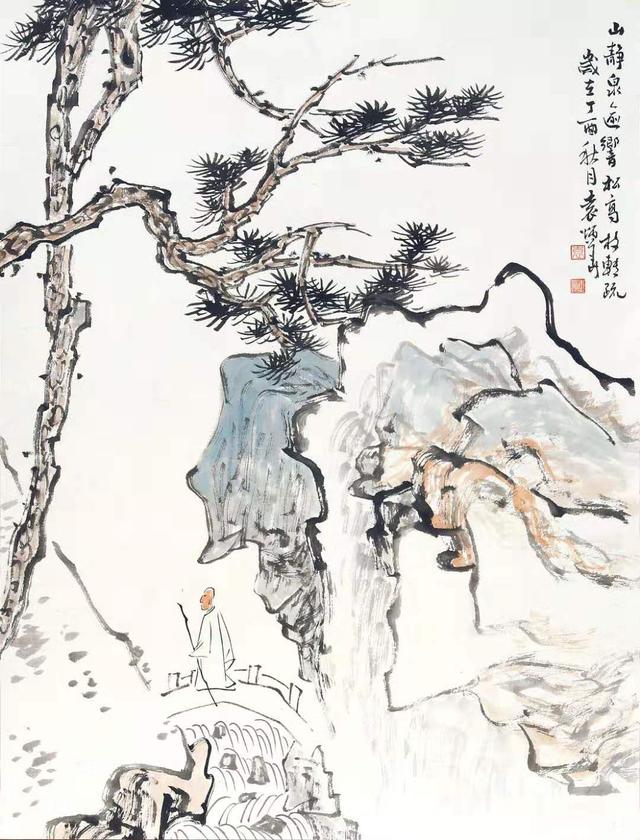 山静泉逾響松高枝轉疏
歲在丁酉秋月袁